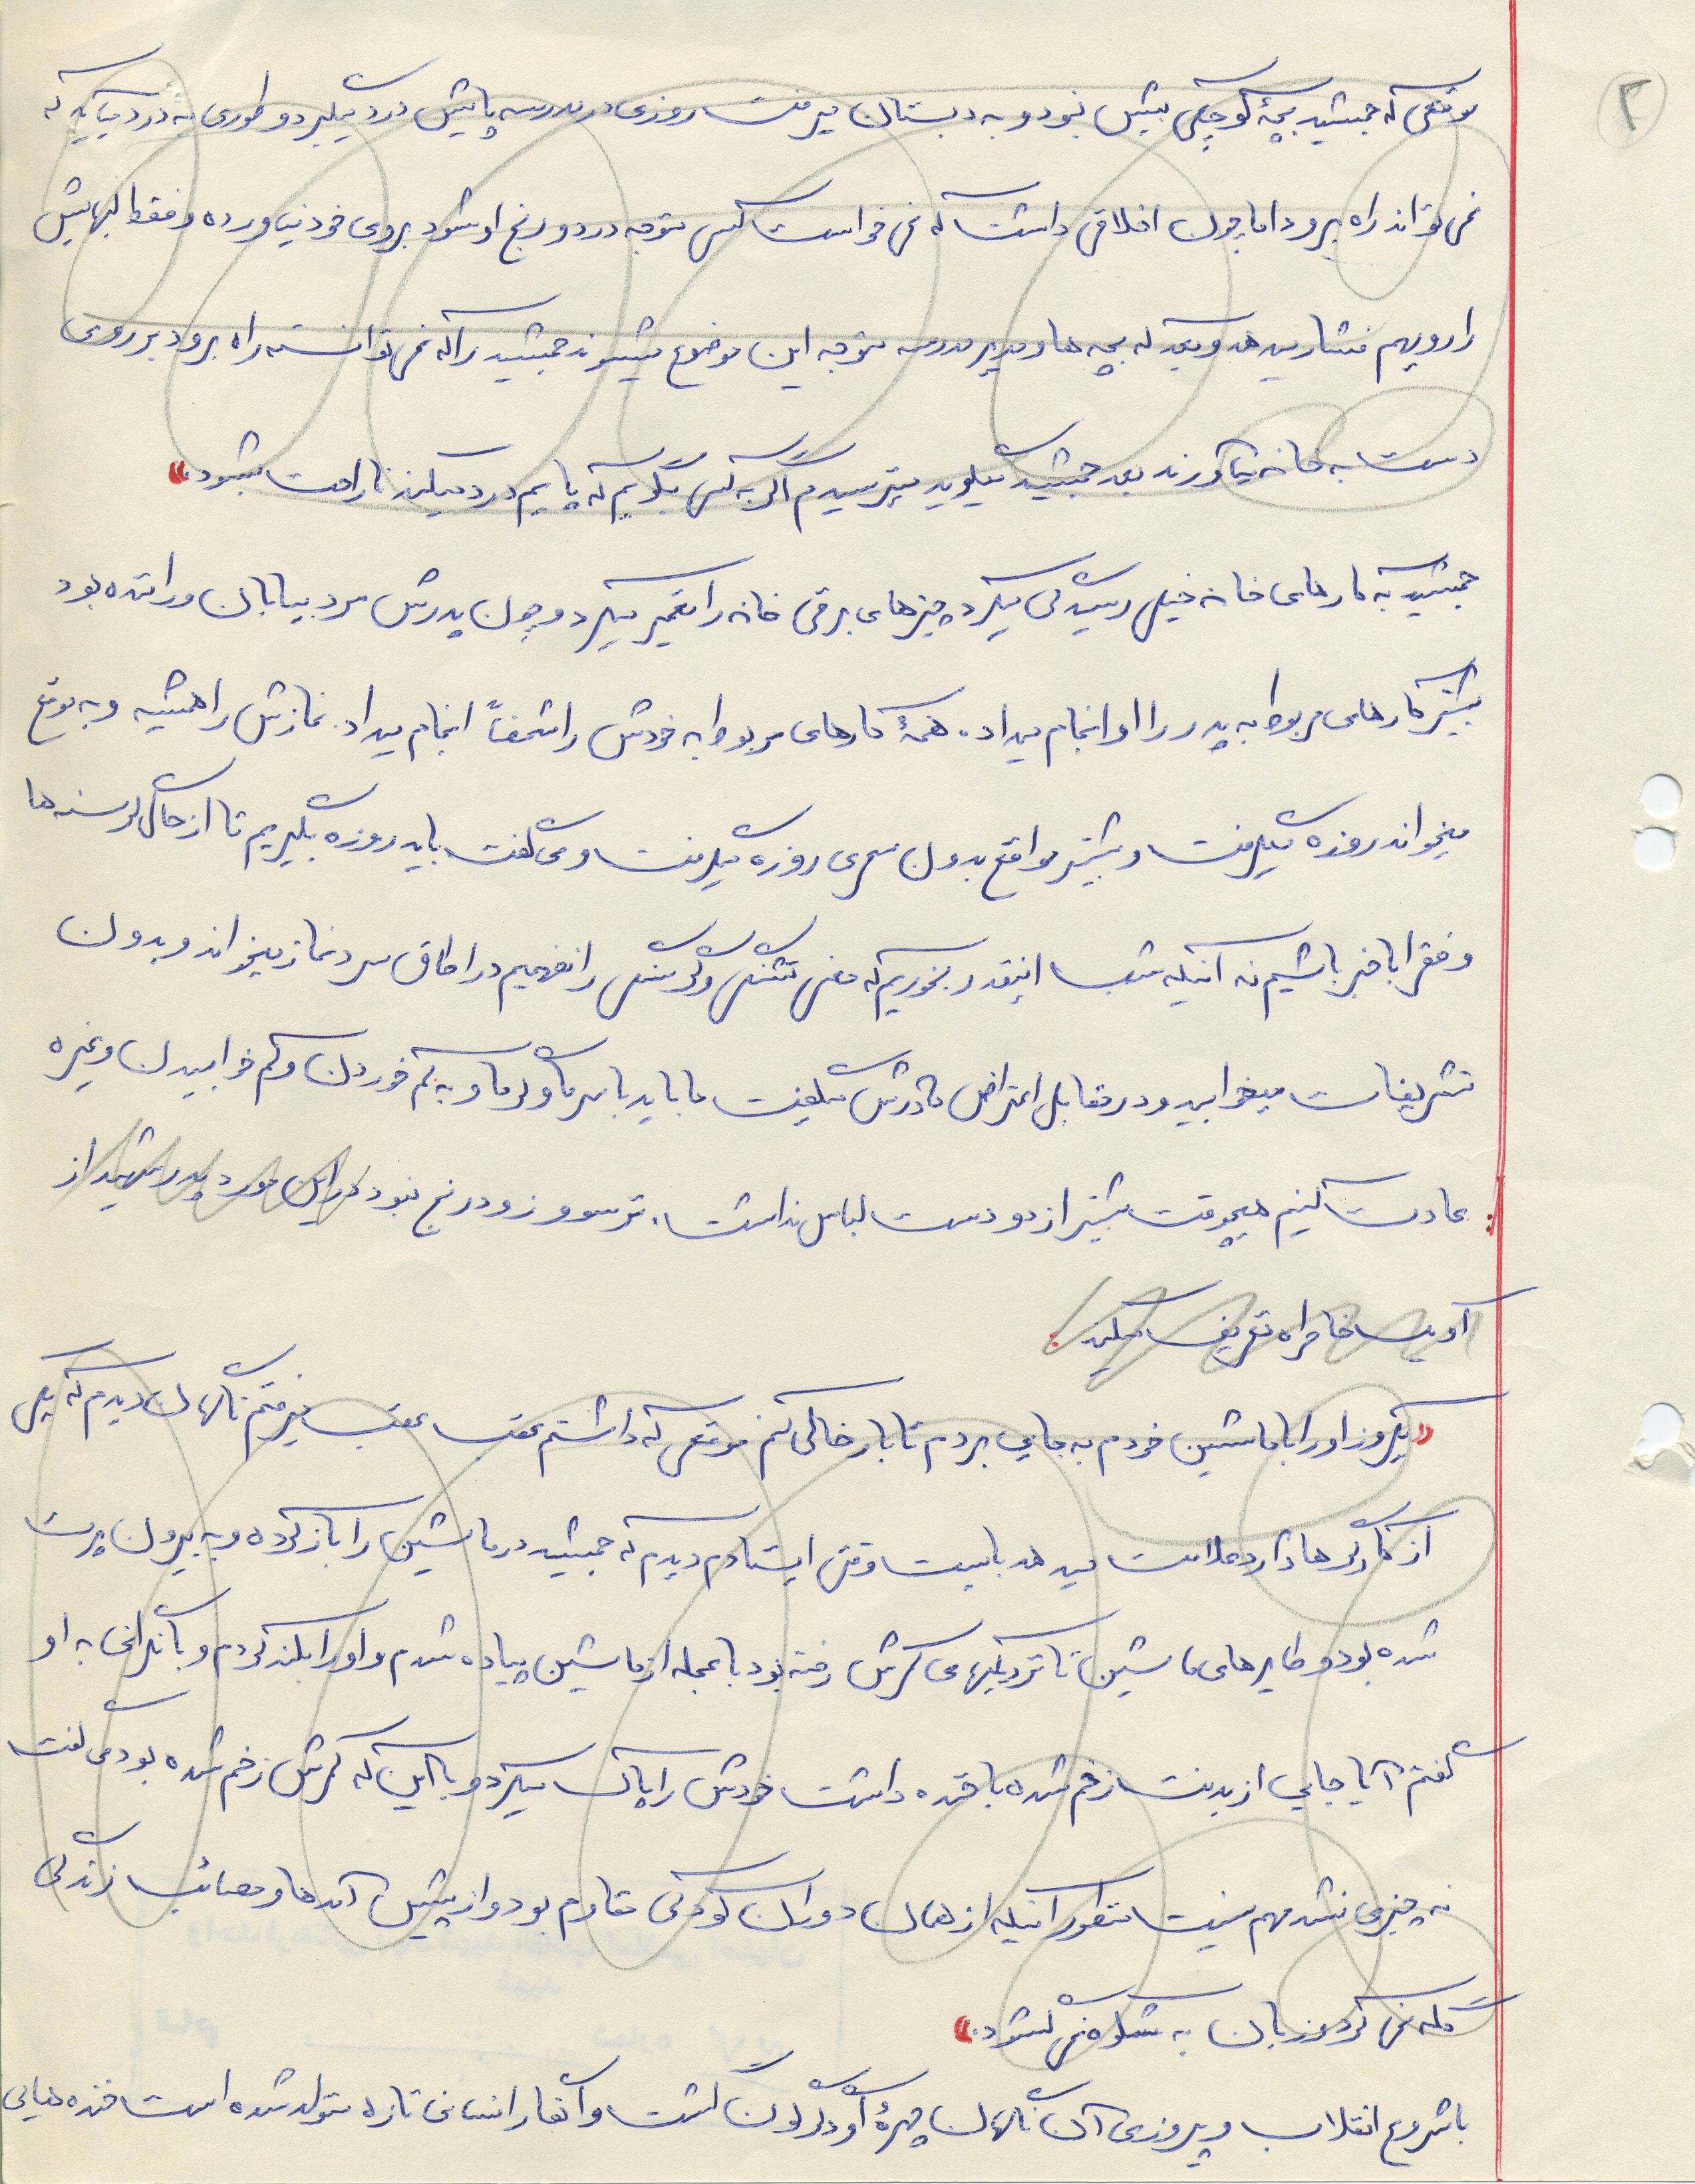 ۲
موقعی که جمشید بچهٔ کوچکی بیش نبود و به دبستان میرفت روزی در مدرسه پایش درد میگیرد و طوری به درد میآید که
نمی تواند راه برود اما چون اخلاقی داشت که نمی خواست کسی متوجه درد و رنج او شود بروی خود نیاورده و فقط لبهایش
را رویهم فشار میدهد و بعد که بچه ها و مدیر مدرسه متوجه این موضوع میشوند جمشید را که نمی توانسته راه برود بر روی
دست به خانه میآورند بعد جمشید میگوید میترسیدم اگر به کسی بگویم که پایم درد میکند ناراحت بشود.»
جمشید به کارهای خانه خیلی رسیدگی میکرد چیزهای برقی خانه را تعمیر میکرد و چون پدرش مرد بیابان و راننده بود
بیشتر کارهای مربوط به پدر را او انجام میداد. همهٔ کارهای مربوط به خودش را شخصاً انجام میداد. نمازش را همیشه و به موقع
میخواند روزه میگرفت و بیشتر مواقع بدون سحری روزه میگرفت و می گفت باید روزه بگیریم تا از حال گرسنه ها
و فقرا با خبر باشیم نه اینکه شب اینقدر بخوریم که معنی تشنگی و گرسنگی را نفهمیم در اطاق سرد نماز میخواند و بدون
تشریفات میخوابید و در مقابل اعتراض مادرش میگفت ما باید با سرما و گرما و به کم خوردن و کم خوابیدن و غیره
عادت کنیم هیچوقت بیشتر از دو دست لباس نداشت. ترسو و زود رنج نبود در این مورد پدر شهید از
او یک خاطراه تعریف میکند:
«یکروز او را با ماشین خودم به جایی بردم تا بار خالی کنم موقعی که داشتم عقب عقب میرفتم ناگهان دیدم که یکی
از کارگرها دارد علامت میدهد بایست وقتی ایستادم دیدم که جمشید در ماشین را باز کرده و به بیرون پرت
شده بود و طایرهای ماشین تا نزدیکیهای کمرش رفته بود با عجله از ماشین پیاده شدم و او را بلند کردم و با نگرانی به او
گفتم آیا جایی از بدنت زخم شده با خنده داشت خودش را پاک میکرد و با این که کمرش زخم شده بود می گفت
نه چیزی نشد مهم نیست منظور اینکه از همان دوران کودکی مقاوم بود و از پیش آمدها و مصائب زندگی
گله نمی کرد و زبان به شکوه نمی گشود.»
با شروع انقلاب و پیروزی آن ناگهان چهرهٔ او دگرگون گشت و آنها را انسانی تازه متولد شده است خنده هایی